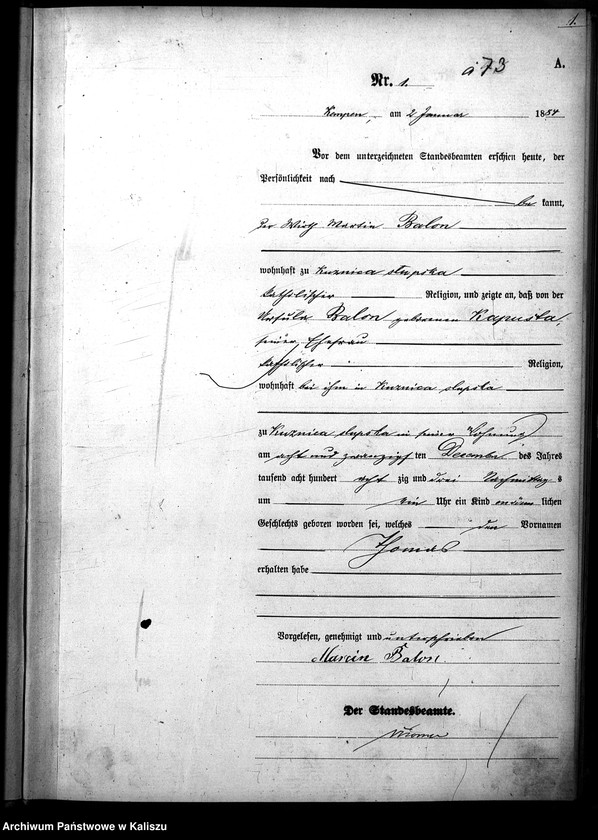 1.
a 73
A.
Nr. 1.
Kempen, am 2 Januar 1884
Vor dem unterzeichneten Standesbeamten erschien heute, der
Persönlichkeit nach
be kannt,
der Wirth Martin Balon
wohnhaft zu Kuznica slupska
katholischer Religion, und zeigte an, daß von der
Ursula Balon geborenen Kapusta,
seiner Ehefrau
katholischer Religion,
wohnhaft bei ihm in Kuznica slupska
zu Kuznica slupska in seiner Wohnung
am acht und zwanzigs ten Dezember des Jahres
tausend acht hundert acht zig und drei Nachmittag s
um ein Uhr ein Kind männ lichen
Geschlechts geboren worden sei, welches den Vornamen
Thomas
erhalten habe
Vorgelesen, genehmigt und unterschrieben
Marcin Balon
Der Standesbeamte.
Archiwum Państwowe w Kaliszu